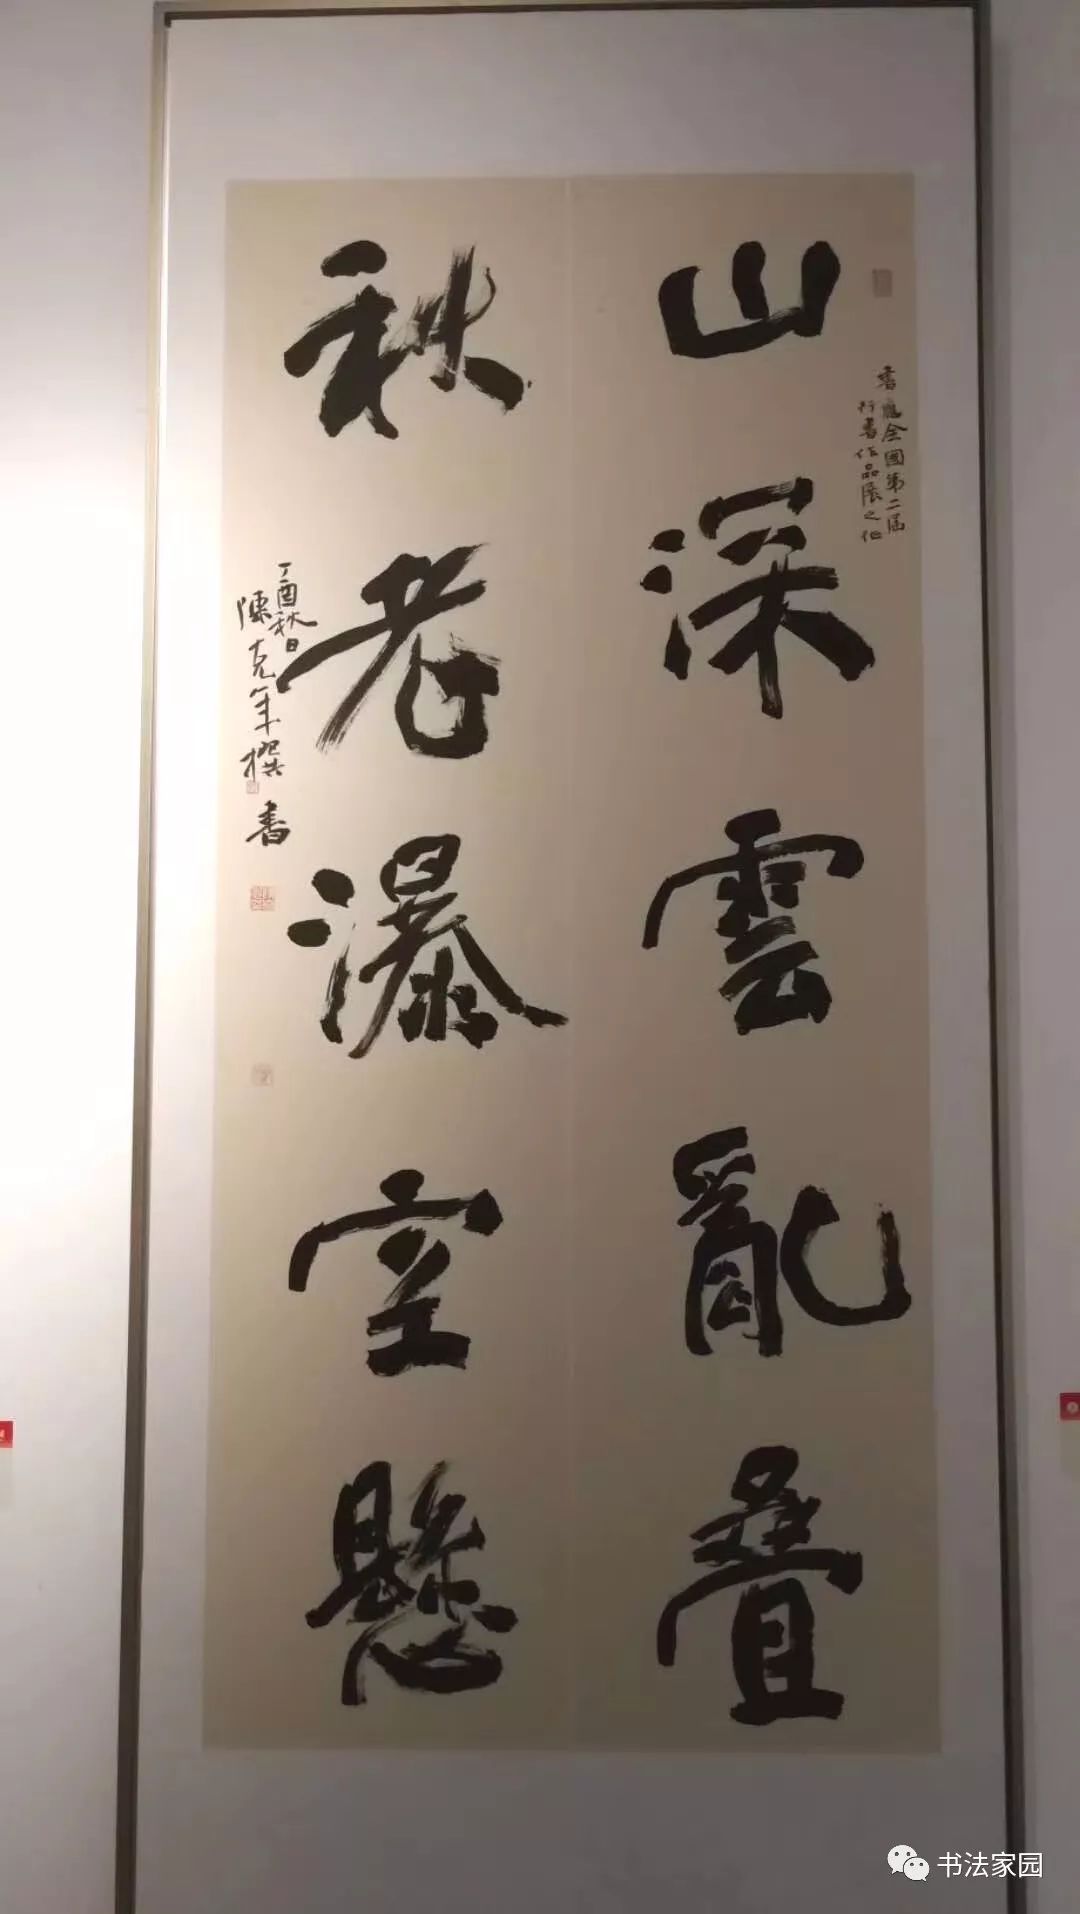 山深雲亂疊
書應全國第二届
行書作品展之作
秋老瀑空懸
丁酉秋日
陳克年撰書
书法家园